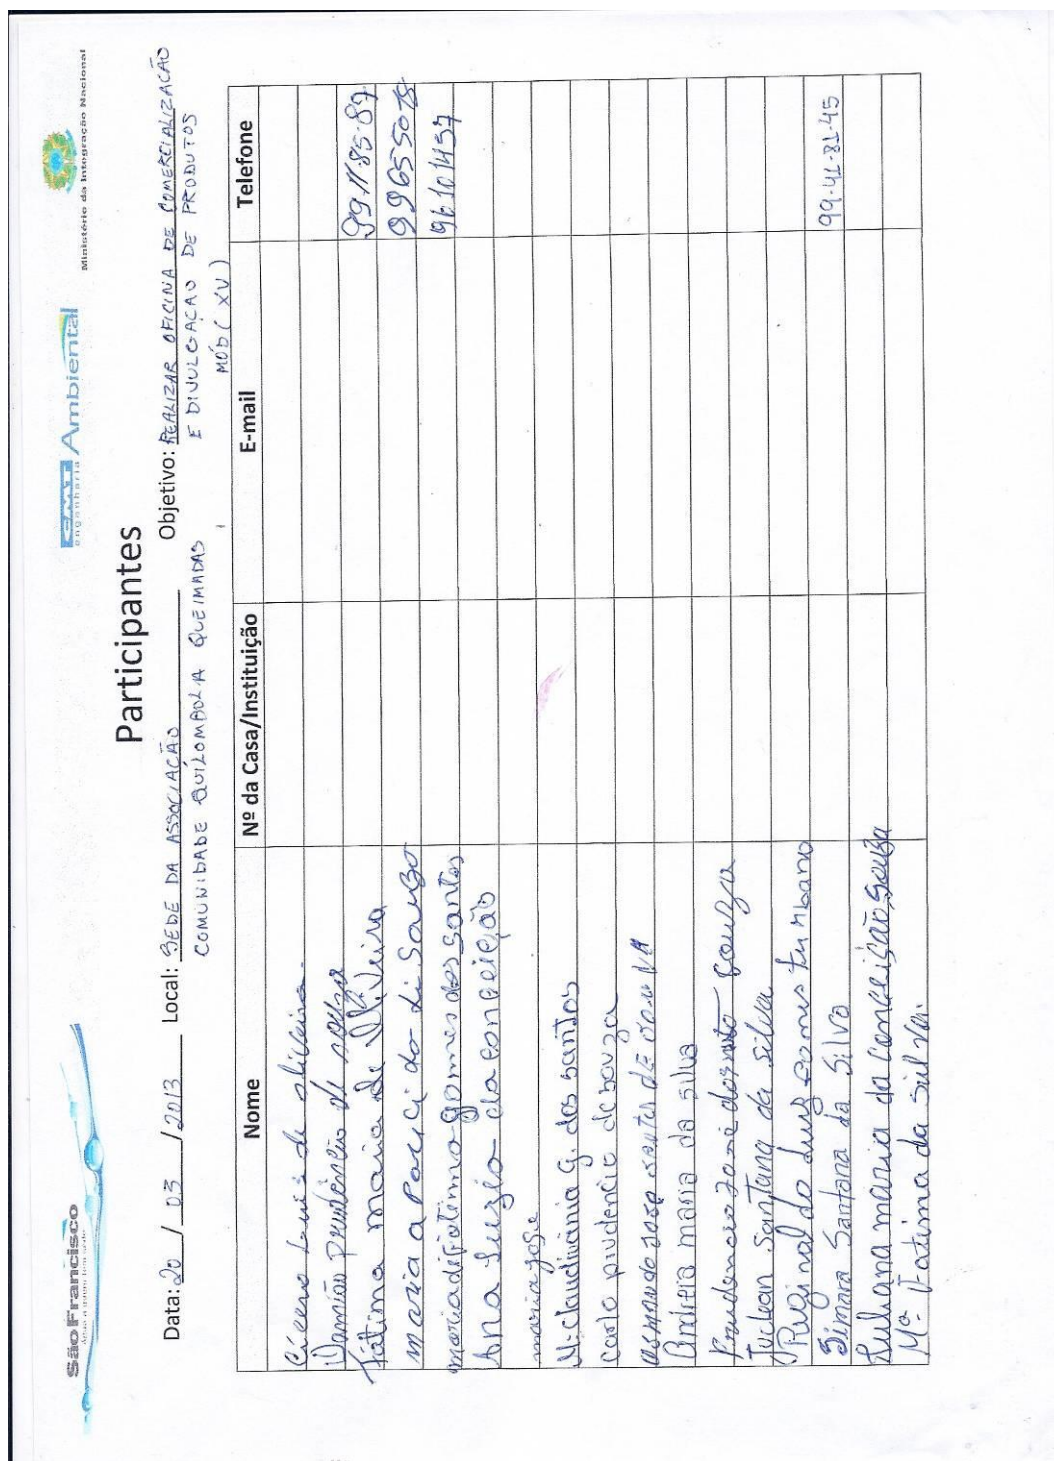 São Francisco
engenharia Ambiental
Ministério da Integração Nacional
Participantes
Data: 20 / 03 / 2013 Local: SEDE DA ASSOCIAÇÃO Objetivo: REALIZAR OFICINA DE COMERCIALIZAÇÃO
COMUNIDADE QUILOMBOLA QUEIMADAS E DIVULGAÇAO DE PRODUTOS
MÓD ( XV )
Nome Nº da Casa/Instituição E-mail Telefone
Cícero Luis de oliveira
Damião Prudêncio de souza
Fátima maria de Oliveira 99-1185-87
maria a Paricido di Souza 99655078
maria de fatima gomes dos santos 96101457
Ana Luzia da conceição
maria jose
M-claudivania G. dos santos
carlo prudencio de souza
jose santos de
Andreia maria da silva
Prudencio José dos souza
Juclean Santana da silva
Reginaldo Luiz gomes Urbano
Simara Santana da Silva 99-41-81-45
Luliana maria da conceição souza
Mª Fatima da Silva